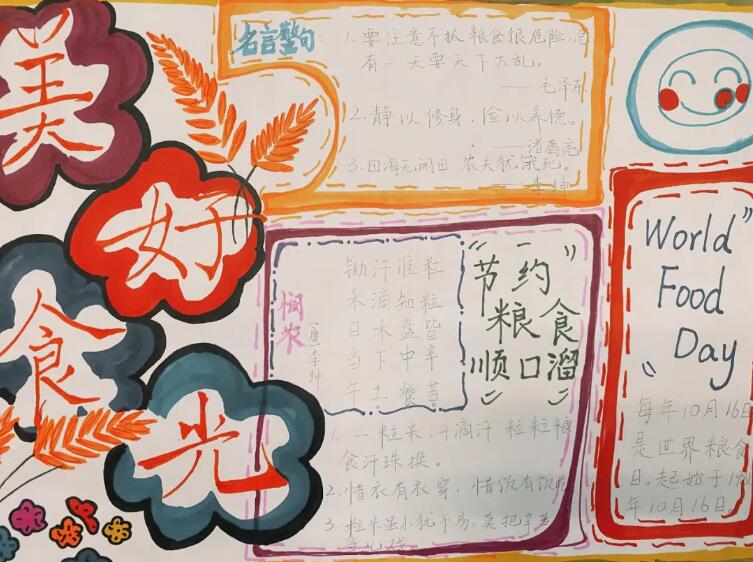 美
好
食
光
名言警句:
1.要注意不抓粮食很危险,总
有一天要天下大乱。
——毛泽东
2.静以修身,俭以养德。
——诸葛亮
3.田海无闲田,农夫犹饿死。
——李绅
悯农
(唐)李绅
锄禾日当午
汗滴禾下土
谁知盘中餐
粒粒皆辛苦
“节约
粮食
顺口溜”
1.一粒米,千滴汗 粒粒粮
食汗珠换。
2.惜衣有衣穿,惜饭有饭吃
3.粒米虽小犹不易,莫把辛苦
当儿戏
"World
Food
Day"
每年10月16日
是世界粮食
日。起始于
年10月16日。